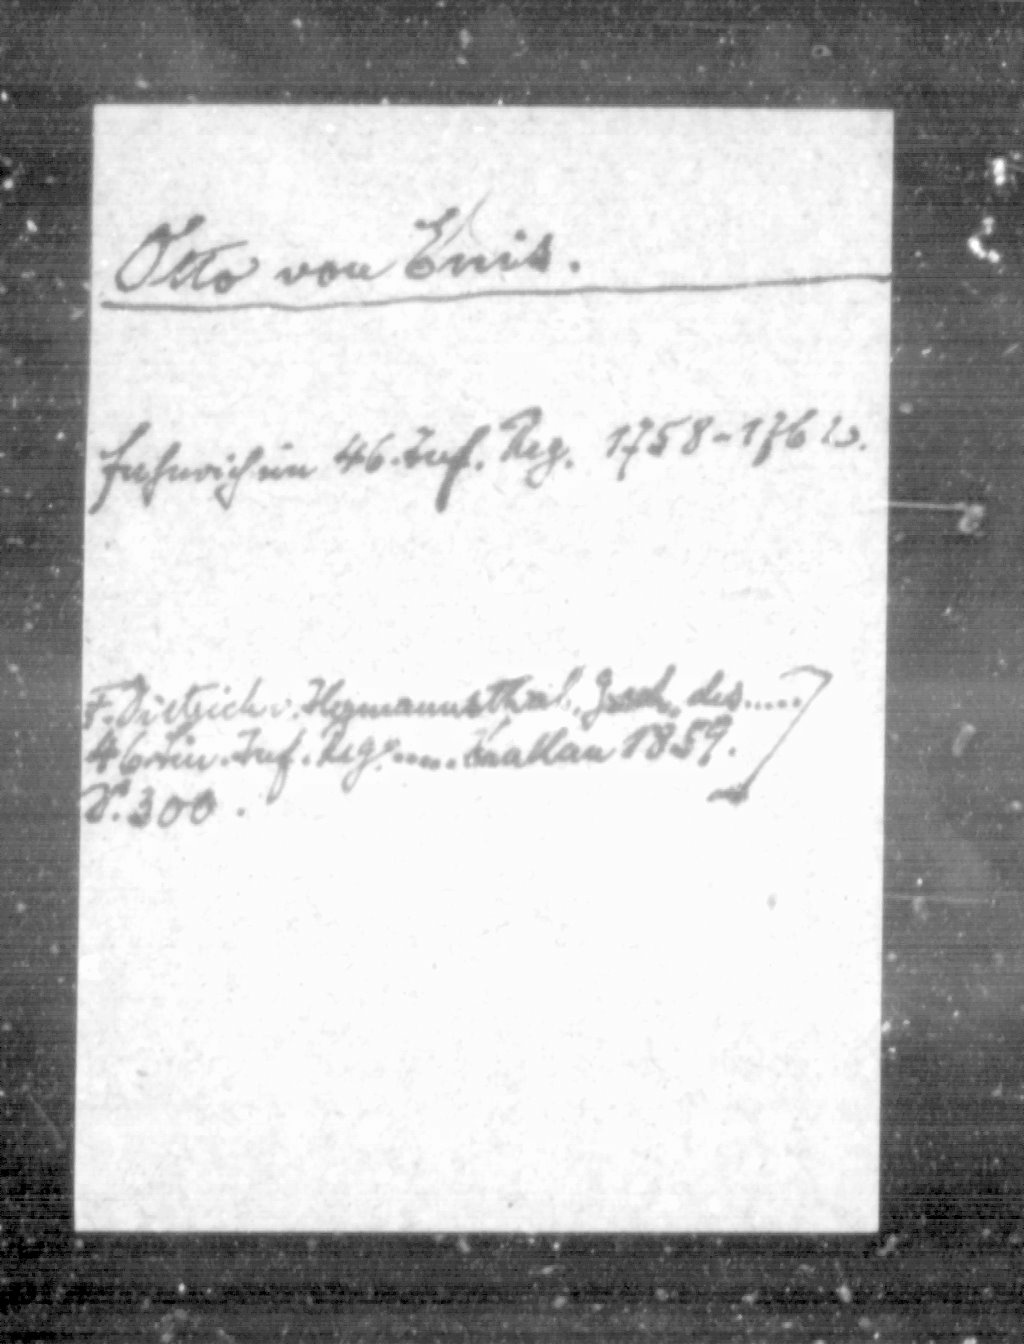 Otto von Enis.
Fähnrich im 46. Inf. Reg. 1758-1762.
F. Dietrich v. Hermannsthal, Gesch. des.....
46. Lin. Inf. Reg. ..... 1859.
S. 300.